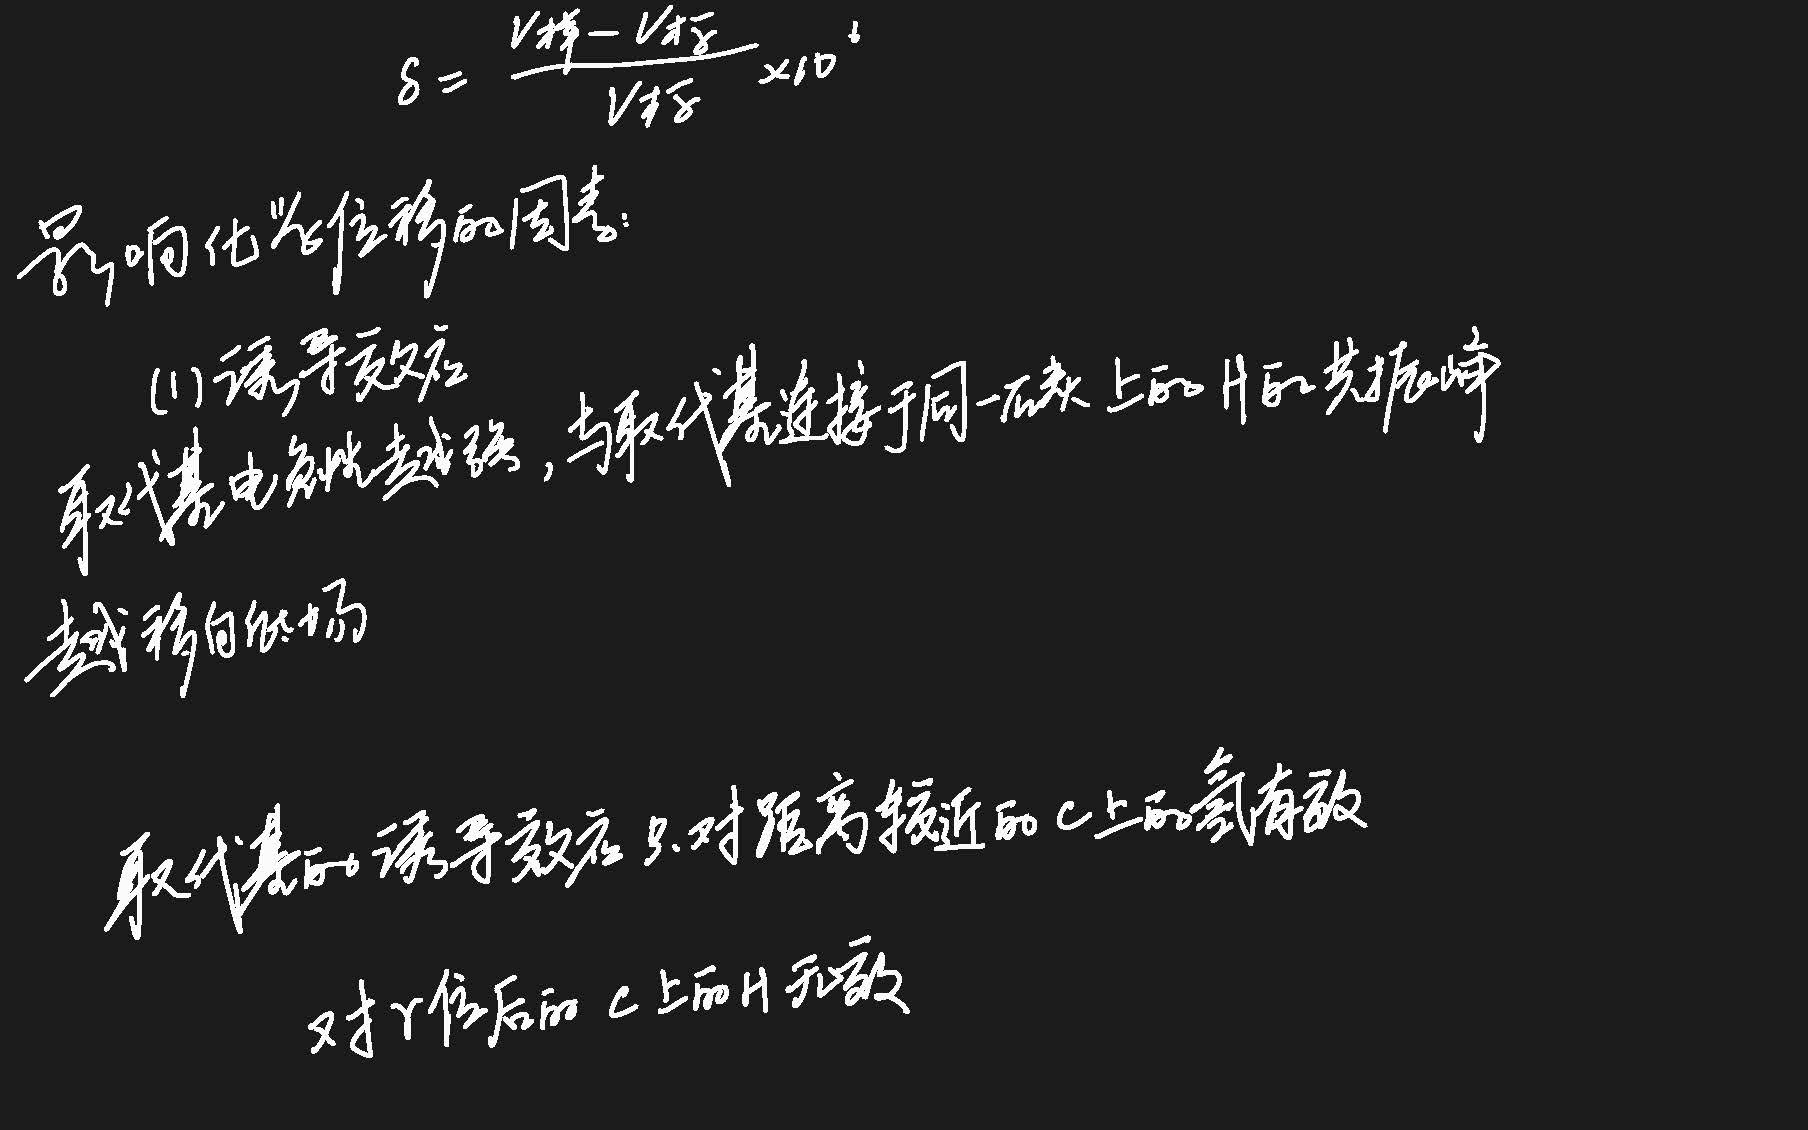 δ = (V样 - V标) / V标 × 10⁶
影响化学位移的因素:
(1) 诱导效应
取代基电负性越强,与取代基连接于同一碳上的H的共振峰
越移向低场
取代基的诱导效应只对距离较近的C上的氢有效
对γ位后的C上的H无效